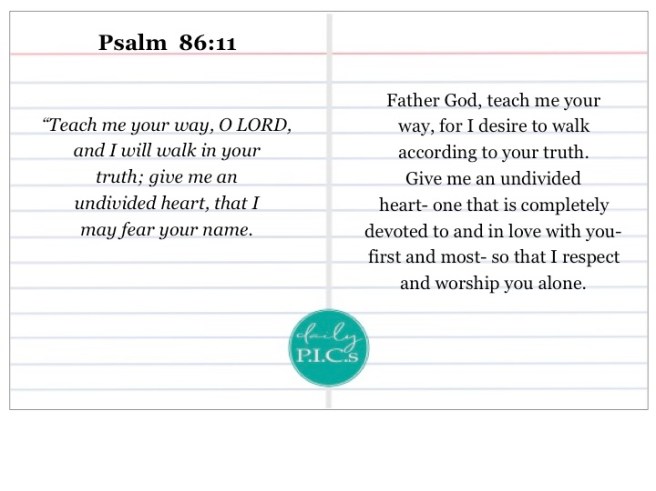 Psalm  86:11
“Teach me your way, O LORD,
and I will walk in your
truth; give me an
undivided heart, that I
may fear your name.
Father God, teach me your
way, for I desire to walk
according to your truth.
Give me an undivided
heart- one that is completely
devoted to and in love with you-
first and most- so that I respect
and worship you alone.
daily
P.I.C.s